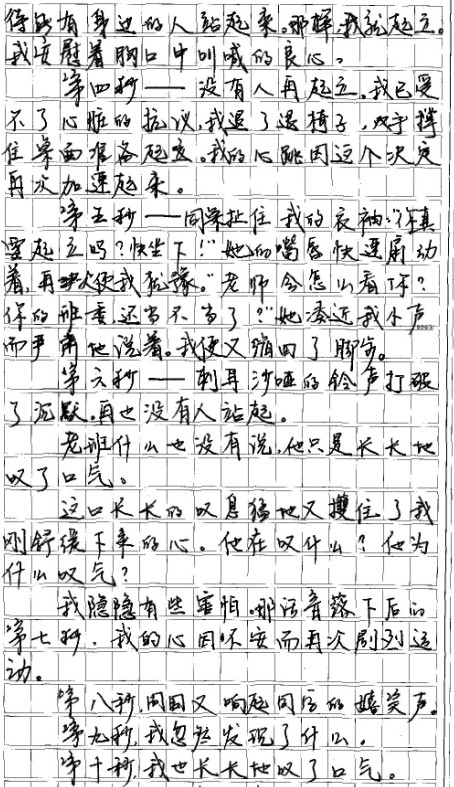 待能有身边的人站起来。那样,我就起立。
我安慰着胸口中叫喊的良心。
第四秒——没有人再起立。我已受
不了心脏的抗议,我退了退椅子,双手撑
住桌面准备起立。我的心跳因这个决定
再次加速起来。
第五秒——同桌扯住我的衣袖:“你真
要起立吗?快坐下!”她的嘴唇快速扇动
着,再一次使我犹豫。“老师会怎么看你?
你的班委还当不当了?”她凑近我小声
而严肃地说着。我便又缩回了脚步。
第六秒——刺耳沙哑的铃声打破
了沉默。再也没有人站起。
老班什么也没有说,他只是长长地
叹了口气。
这口长长的叹息猛地又攫住了我
刚舒缓下来的心。他在叹什么?他为
什么叹气?
我隐隐有些害怕。那话音落下后的
第七秒,我的心因不安而再次剧烈运
动。
第八秒,周围又响起同学的嬉笑声。
第九秒,我忽然发现了什么。
第十秒,我也长长地叹了口气。